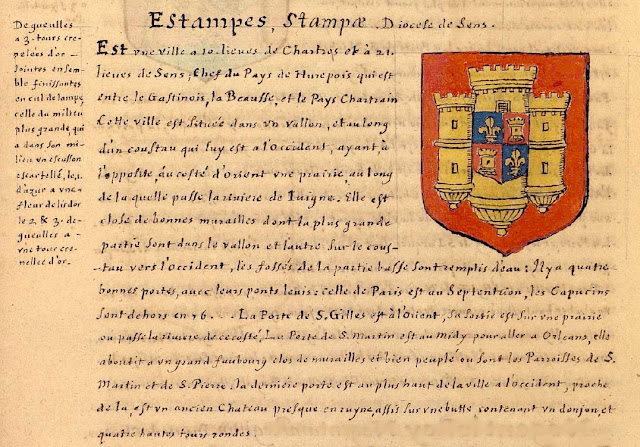 Estampes, Stampæ. Diocese de Sens.
De gueulles
a 3. tours cre-
pelées d'or
Jointes ensem
ble finissantes
en cul de lampe,
celle du milieu
plus grande, qui
a dans son mi-
lieu un escusson
escartellé, le 1.
d'azur a une
fleur de lis d'or
le 2. & 3. de
gueulles a
une tour cre-
nellee d'or.
Est une ville a 10. lieues de Chartres et à 21.
lieues de Sens; Chef du Pays de Hurepois qui est
entre le Gastinois, la Beausse, et le Pays Chartrain
Cette ville est située dans un vallon, et au long
d'un coustau qui luy est a l'Occident, ayant à
l'opposite, au costé d'Orient une prairie, au long
de la quelle passe la riuiere de Iuigne. Elle est
close de bonnes murailles dont la plus grande
partie sont dans le vallon et l'autre sur le cous-
tau vers l'Occident, les fossés de la partie basse sont remplis d'eau: Il y a quatre
bonnes portes, auec leurs ponts leuis: celle de Paris est au Septention, les Capucins
sont dehors en 76. La Porte de S. Gilles est à l'Orient, sa sortie est sur une prairie
ou passe la riuiere de ce costé, La Porte de S. Martin est au Midy pour aller a Orleans, elle
aboutit a un grand fauxbourg clos de murailles et bien peuplé ou sont les Parroisses de S.
Martin et de S. Pierre. la derniere porte est au plus haut de la ville a l'occident, proche
de la, est un ancien Chateau presque en ruyne, assis sur une butte contenant un donjon, et
quatre hautes tours rondes.